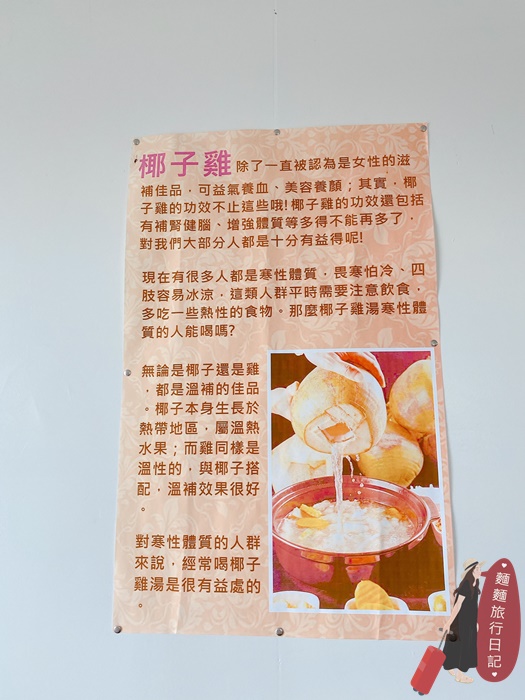 椰子雞除了一直被認為是女性的滋
補佳品，可益氣養血、美容養顏；其實，椰
子雞的功效不止這些哦!椰子雞的功效還包括
有補腎健腦、增強體質等多得不能再多了，
對我們大部分人都是十分有益得呢!
現在有很多人都是寒性體質，畏寒怕冷、四
肢容易冰涼，這類人群平時需要注意飲食，
多吃一些熱性的食物。那麼椰子雞湯寒性體
質的人能喝嗎?
無論是椰子還是雞
，都是溫補的佳品
。椰子本身生長於
熱帶地區，屬溫熱
水果；而雞同樣是
溫性的，與椰子搭
配，溫補效果很好
。
對寒性體質的人群
來說，經常喝椰子
雞湯是很有益處的
。
麵麵旅行日記